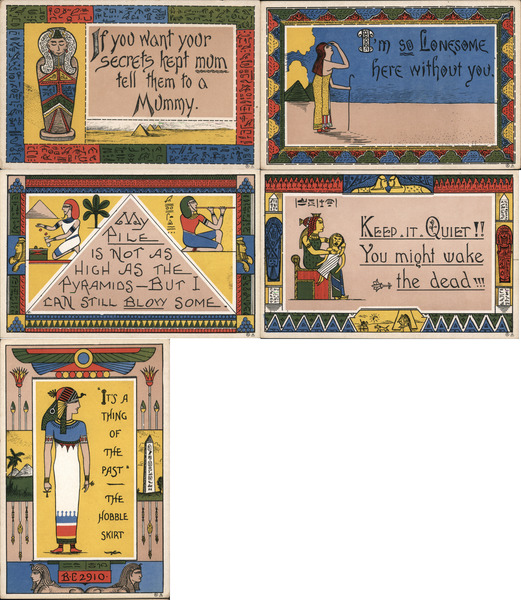 If you want your
secrets kept mum
tell them to a
Mummy.
I'm so Lonesome
here without you.
My
Pile
is not as
high as the
Pyramids—But I
can still blow some.
Keep it Quiet!!
You might wake
the dead!!!
"It's a
thing
of
the
past"
—
the
hobble
skirt
B.C 2910.